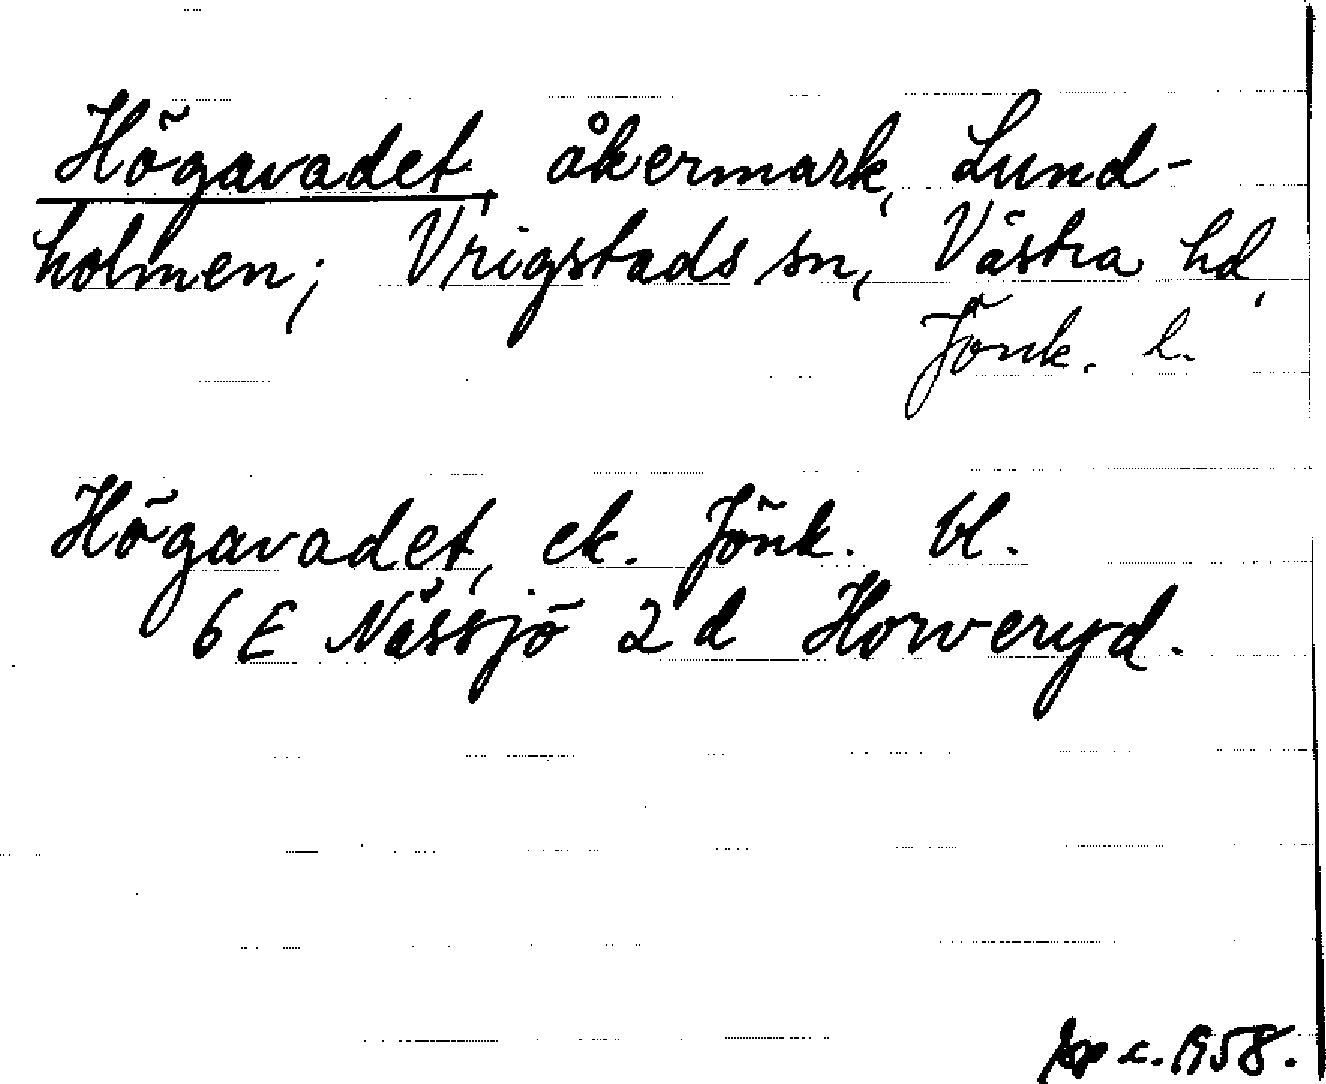 Högavadet, åkermark, Lund-
holmen; Vrigstads sn, Västra hd,
Jönk. l.
Högavadet, ek. Jönk. bl.
6 E Nässjö 2 d Horveryd.
c. 1958.